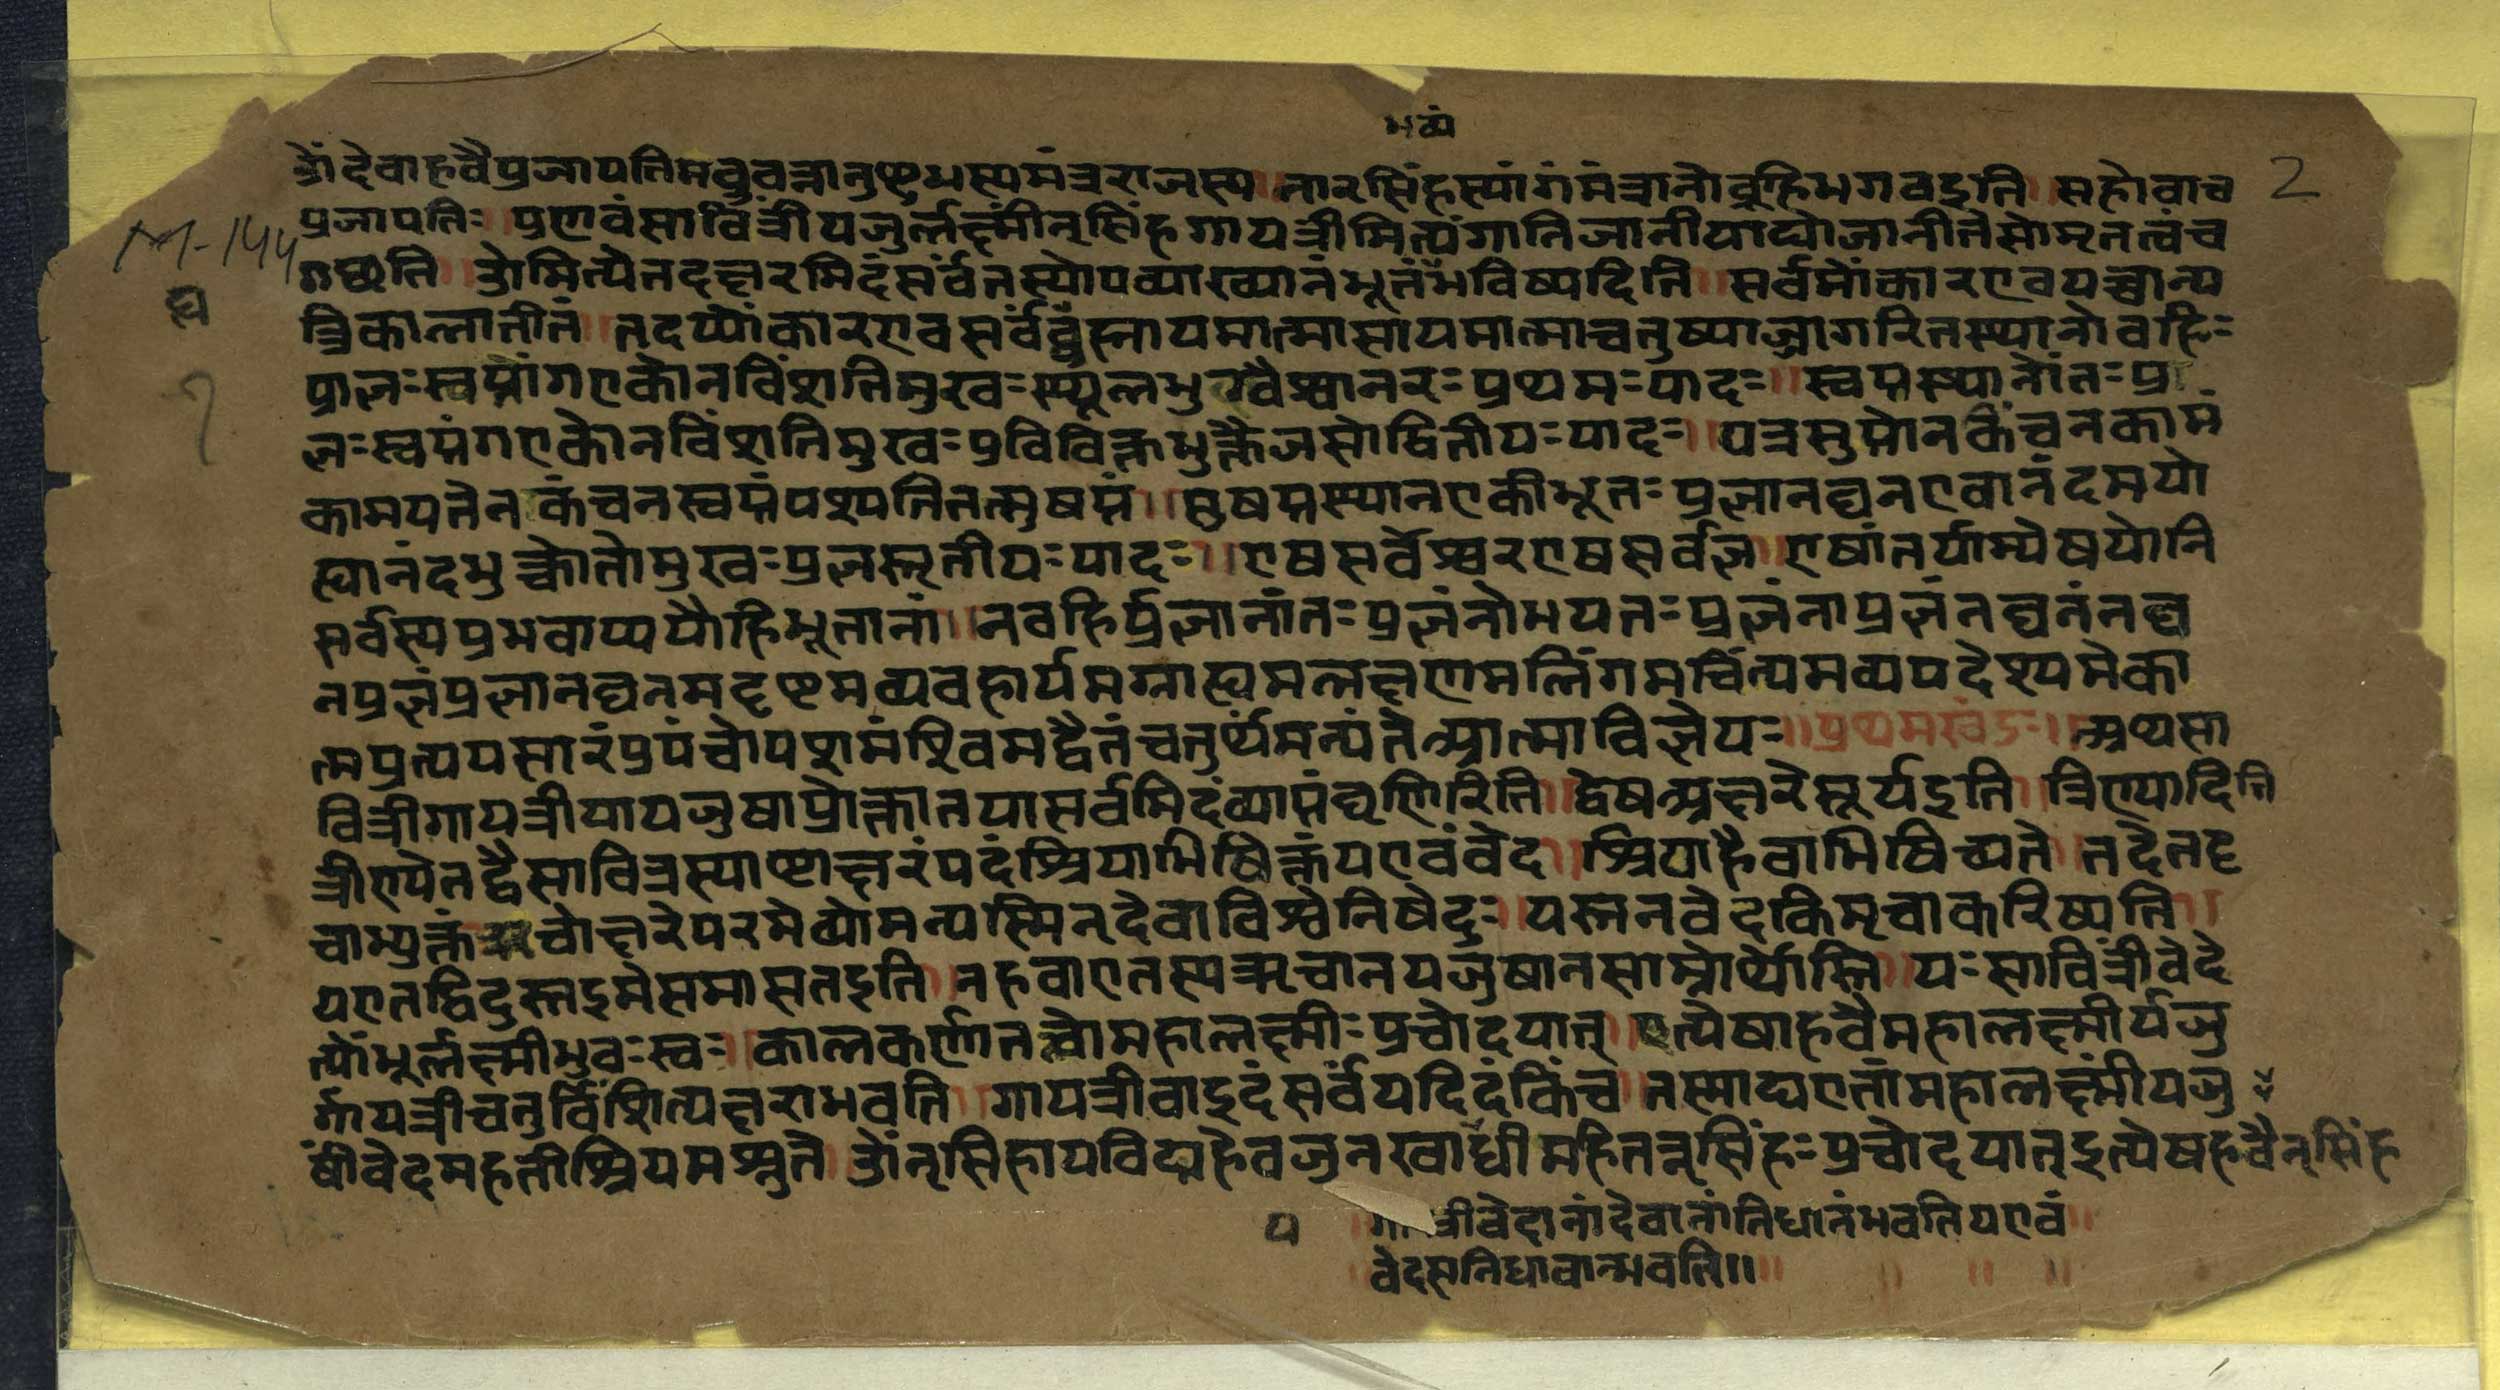 भव्यं
ॐदेवाहवैप्रजापतिमब्रुवन्नानुष्टुभस्यमंत्रराजस्य॥नारसिंहस्यांगंमंत्रानोब्रूहिभगवइति॥सहोवाच
2
प्रजापतिः॥प्रणवंसावित्रींयजुर्लक्ष्मींनृसिंहगायत्रीमित्यंगानिजानीयाद्योजानीतेसोमृतत्वंच
M-144
गछति॥ओमित्येतदक्षरमिदंसर्वंतस्योपव्याख्यानंभूतंभविष्यदिति॥सर्वमोंकारएवयच्चान्य
त्रिकालातीतं॥तदप्योंकारएवसर्वंब्रह्मायमात्मासोयमात्माचतुष्पाज्जागरितस्थानोवहिः
प्राज्ञःस्वप्नांगएकोनविंशतिमुखःस्थूलभुग्वैश्वानरःप्रथमःपादः॥स्वप्नस्थानोंतःप्र
ज्ञःस्वप्नंगएकोनविंशतिमुखःप्रविविक्तभुक्तैजसोद्वितीयःपादः॥यत्रसुप्तोनकंचनकामं
कामयतेनकंचनस्वप्नंपश्यतितत्सुषप्तं॥सुषप्तस्थानएकीभूतःप्रज्ञानघनएवानंदमयो
ह्यानंदभुक्चेतोमुखःप्रज्ञस्तृतीयःपादः॥एषसर्वेश्वरएषसर्वज्ञ॥एषांतर्याम्येषयोनि
सर्वस्यप्रभवाप्ययौहिभूतानां॥नवहिर्प्रज्ञानांतःप्रज्ञंनोभयतःप्रज्ञंनाप्रज्ञंनघनंनघ
नप्रज्ञंप्रज्ञानघनमदृष्टमव्यवहार्यमग्राह्यमलक्षणमलिंगमचिंत्यमव्यपदेश्यमेका
त्मप्रत्ययसारंप्रपंचोपशमंशिवमद्वैतंचतुर्थंमन्यंतेआत्माविज्ञेयः॥प्रथमखंडः॥अथसा
वित्रीगायत्रीयायजुषाप्रोक्तातयासर्वमिदंव्याप्तंघृणिरिति॥द्वेषअक्षरेसूर्यइति॥त्रिण्यादिति
त्रीण्येतद्वैसावित्रस्याष्टाक्षरंपदंश्रियाभिषिक्तंयएवंवेद॥श्रियाहैवाभिषिच्यते॥तदेतदृ
चाभ्युक्तंऋचोक्षरेपरमेव्योमन्यस्मिन्देवाविश्वेनिषेदुः॥यस्तनवेदकिमृचाकरिष्यति॥
यएतद्विदुस्तइमेसमासतइति॥नहवाएतस्यऋचानयजुषानसाम्नोर्थोस्ति॥यःसावित्रींवेदे
त्योंभूर्लक्ष्मीभुवःस्वः॥कालकर्णीतन्नोमहालक्ष्मीःप्रचोदयात्॥इत्येषाहवैमहालक्ष्मीर्यजु
र्गायत्रीचतुर्विंशत्यक्षराभवति॥गायत्रीवाइदंसर्वंयदिदंकिंच॥तस्माद्यएतांमहालक्ष्मींयजु
षींवेदमहतींश्रियमश्नुते॥ॐनृसिंहायविद्महेवज्रनखायधीमहितन्नृसिंहःप्रचोदयात्इत्येषहवैनृसिंह
॥गायत्रीवेदानांदेवानांनिधानंभवतियएवं॥
वेदसनिधावान्भवति॥